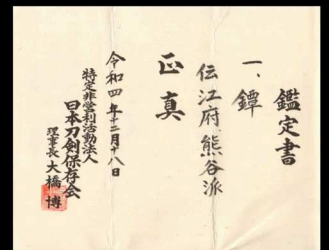 鑑定書
一、鐔
伝江府熊谷派
正真
令和四年十二月十八日
特定非営利活動法人
日本刀剣保存会
理事長 大橋博